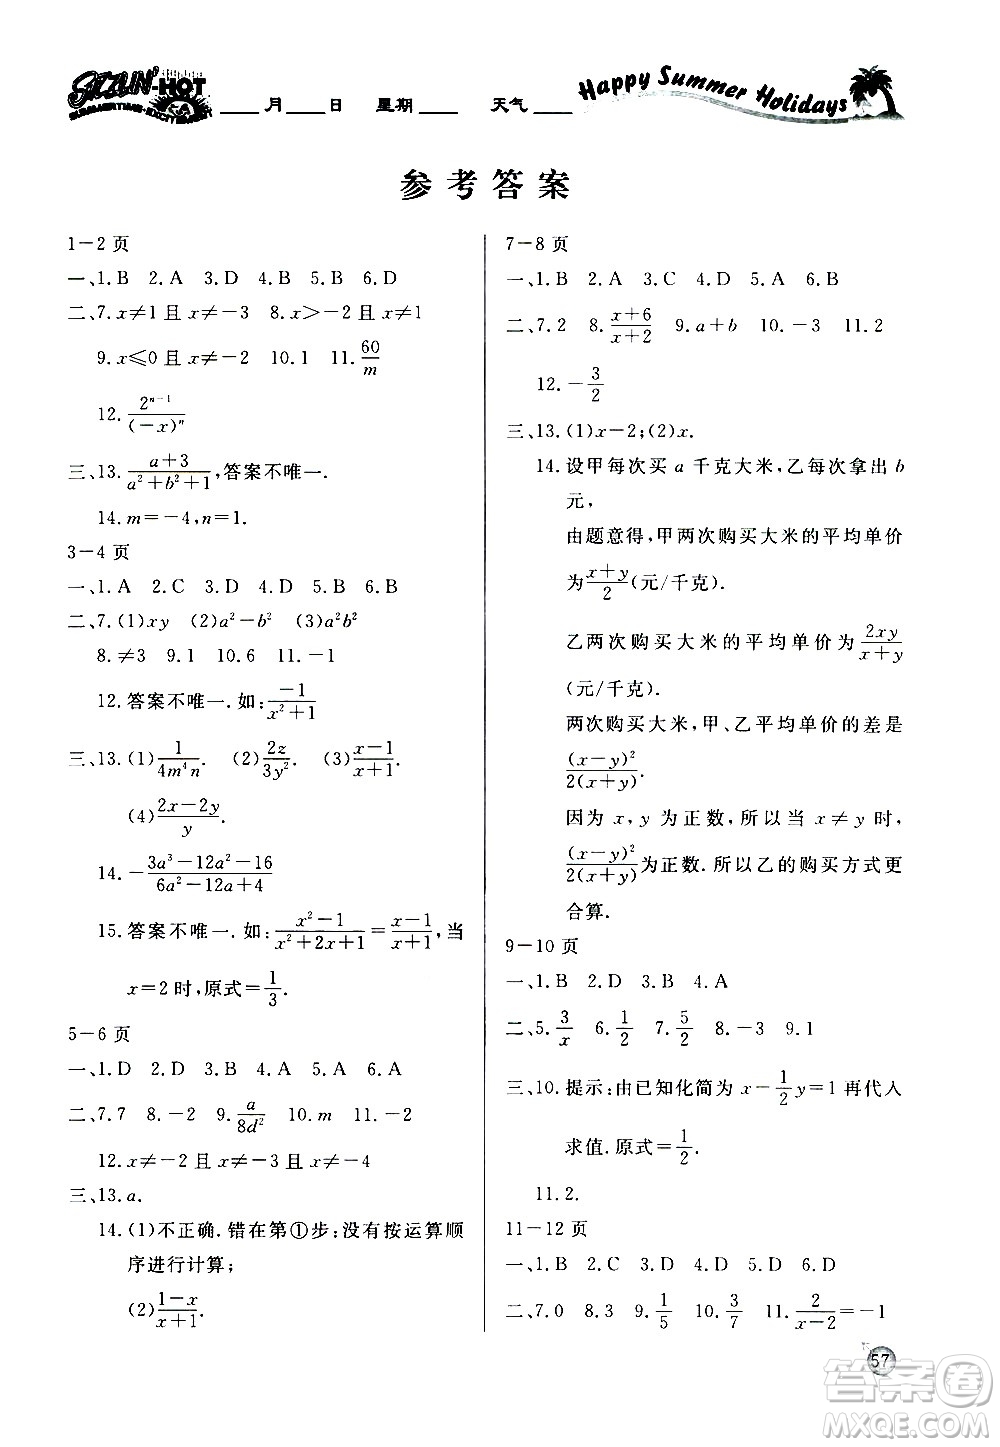 SIZLIN'-HOT
SUMMERTIME-EXCITEMENT
____月____日 星期____ 天气____
Happy Summer Holidays
参考答案
1－2 页
一、1.B 2.A 3.D 4.B 5.B 6.D
二、7.x≠1 且 x≠－3 8.x>－2 且 x≠1
9.x≤0 且 x≠－2 10.1 11.60/m
12.2ⁿ⁻¹/(－x)ⁿ
三、13.(a＋3)/(a²＋b²＋1),答案不唯一.
14.m＝－4,n＝1.
3－4 页
一、1.A 2.C 3.D 4.C 5.D 6.B
二、7.(1)xy (2)a²－b² (3)a²b²
8.≠3 9.1 10.6 11.－1
12.答案不唯一.如:－1/(x²＋1)
三、13.(1)1/(4m⁴n). (2)2z/(3y²). (3)(x－1)/(x＋1).
(4)(2x－2y)/y.
14.－(3a³－12a²－16)/(6a²－12a＋4)
15.答案不唯一.如:(x²－1)/(x²＋2x＋1)＝(x－1)/(x＋1),当
x＝2 时,原式＝1/3.
5－6 页
一、1.D 2.D 3.B 4.C 5.A 6.D
二、7.7 8.－2 9.a/(8d²) 10.m 11.－2
12.x≠－2 且 x≠－3 且 x≠－4
三、13.a.
14.(1)不正确.错在第①步;没有按运算顺
序进行计算;
(2)(1－x)/(x＋1).
7－8 页
一、1.B 2.A 3.A 4.C 5.A 6.B
二、7.2 8.(x＋6)/(x＋2) 9.a＋b 10.－3 11.2
12.－3/2
三、13.(1)x－2;(2)x.
14.设甲每次买 a 千克大米,乙每次拿出 b
元,
由题意得,甲两次购买大米的平均单价
为(x＋y)/2(元/千克).
乙两次购买大米的平均单价为2xy/(x＋y)
(元/千克).
两次购买大米,甲、乙平均单价的差是
(x－y)²/2(x＋y).
因为 x,y 为正数,所以当 x≠y 时,
(x－y)²/2(x＋y)为正数.所以乙的购买方式更
合算.
9－10 页
一、1.B 2.D 3.B 4.A
二、5.3/x 6.1/2 7.5/2 8.－3 9.1
三、10.提示:由已知化简为 x－1/2y＝1 再代入
求值.原式＝1/2.
11.2.
11－12 页
一、1.B 2.D 3.C 4.D 5.D 6.D
二、7.0 8.3 9.1/5 10.3/7 11.2/(x－2)＝－1
57
答案圈
MXQE.COM